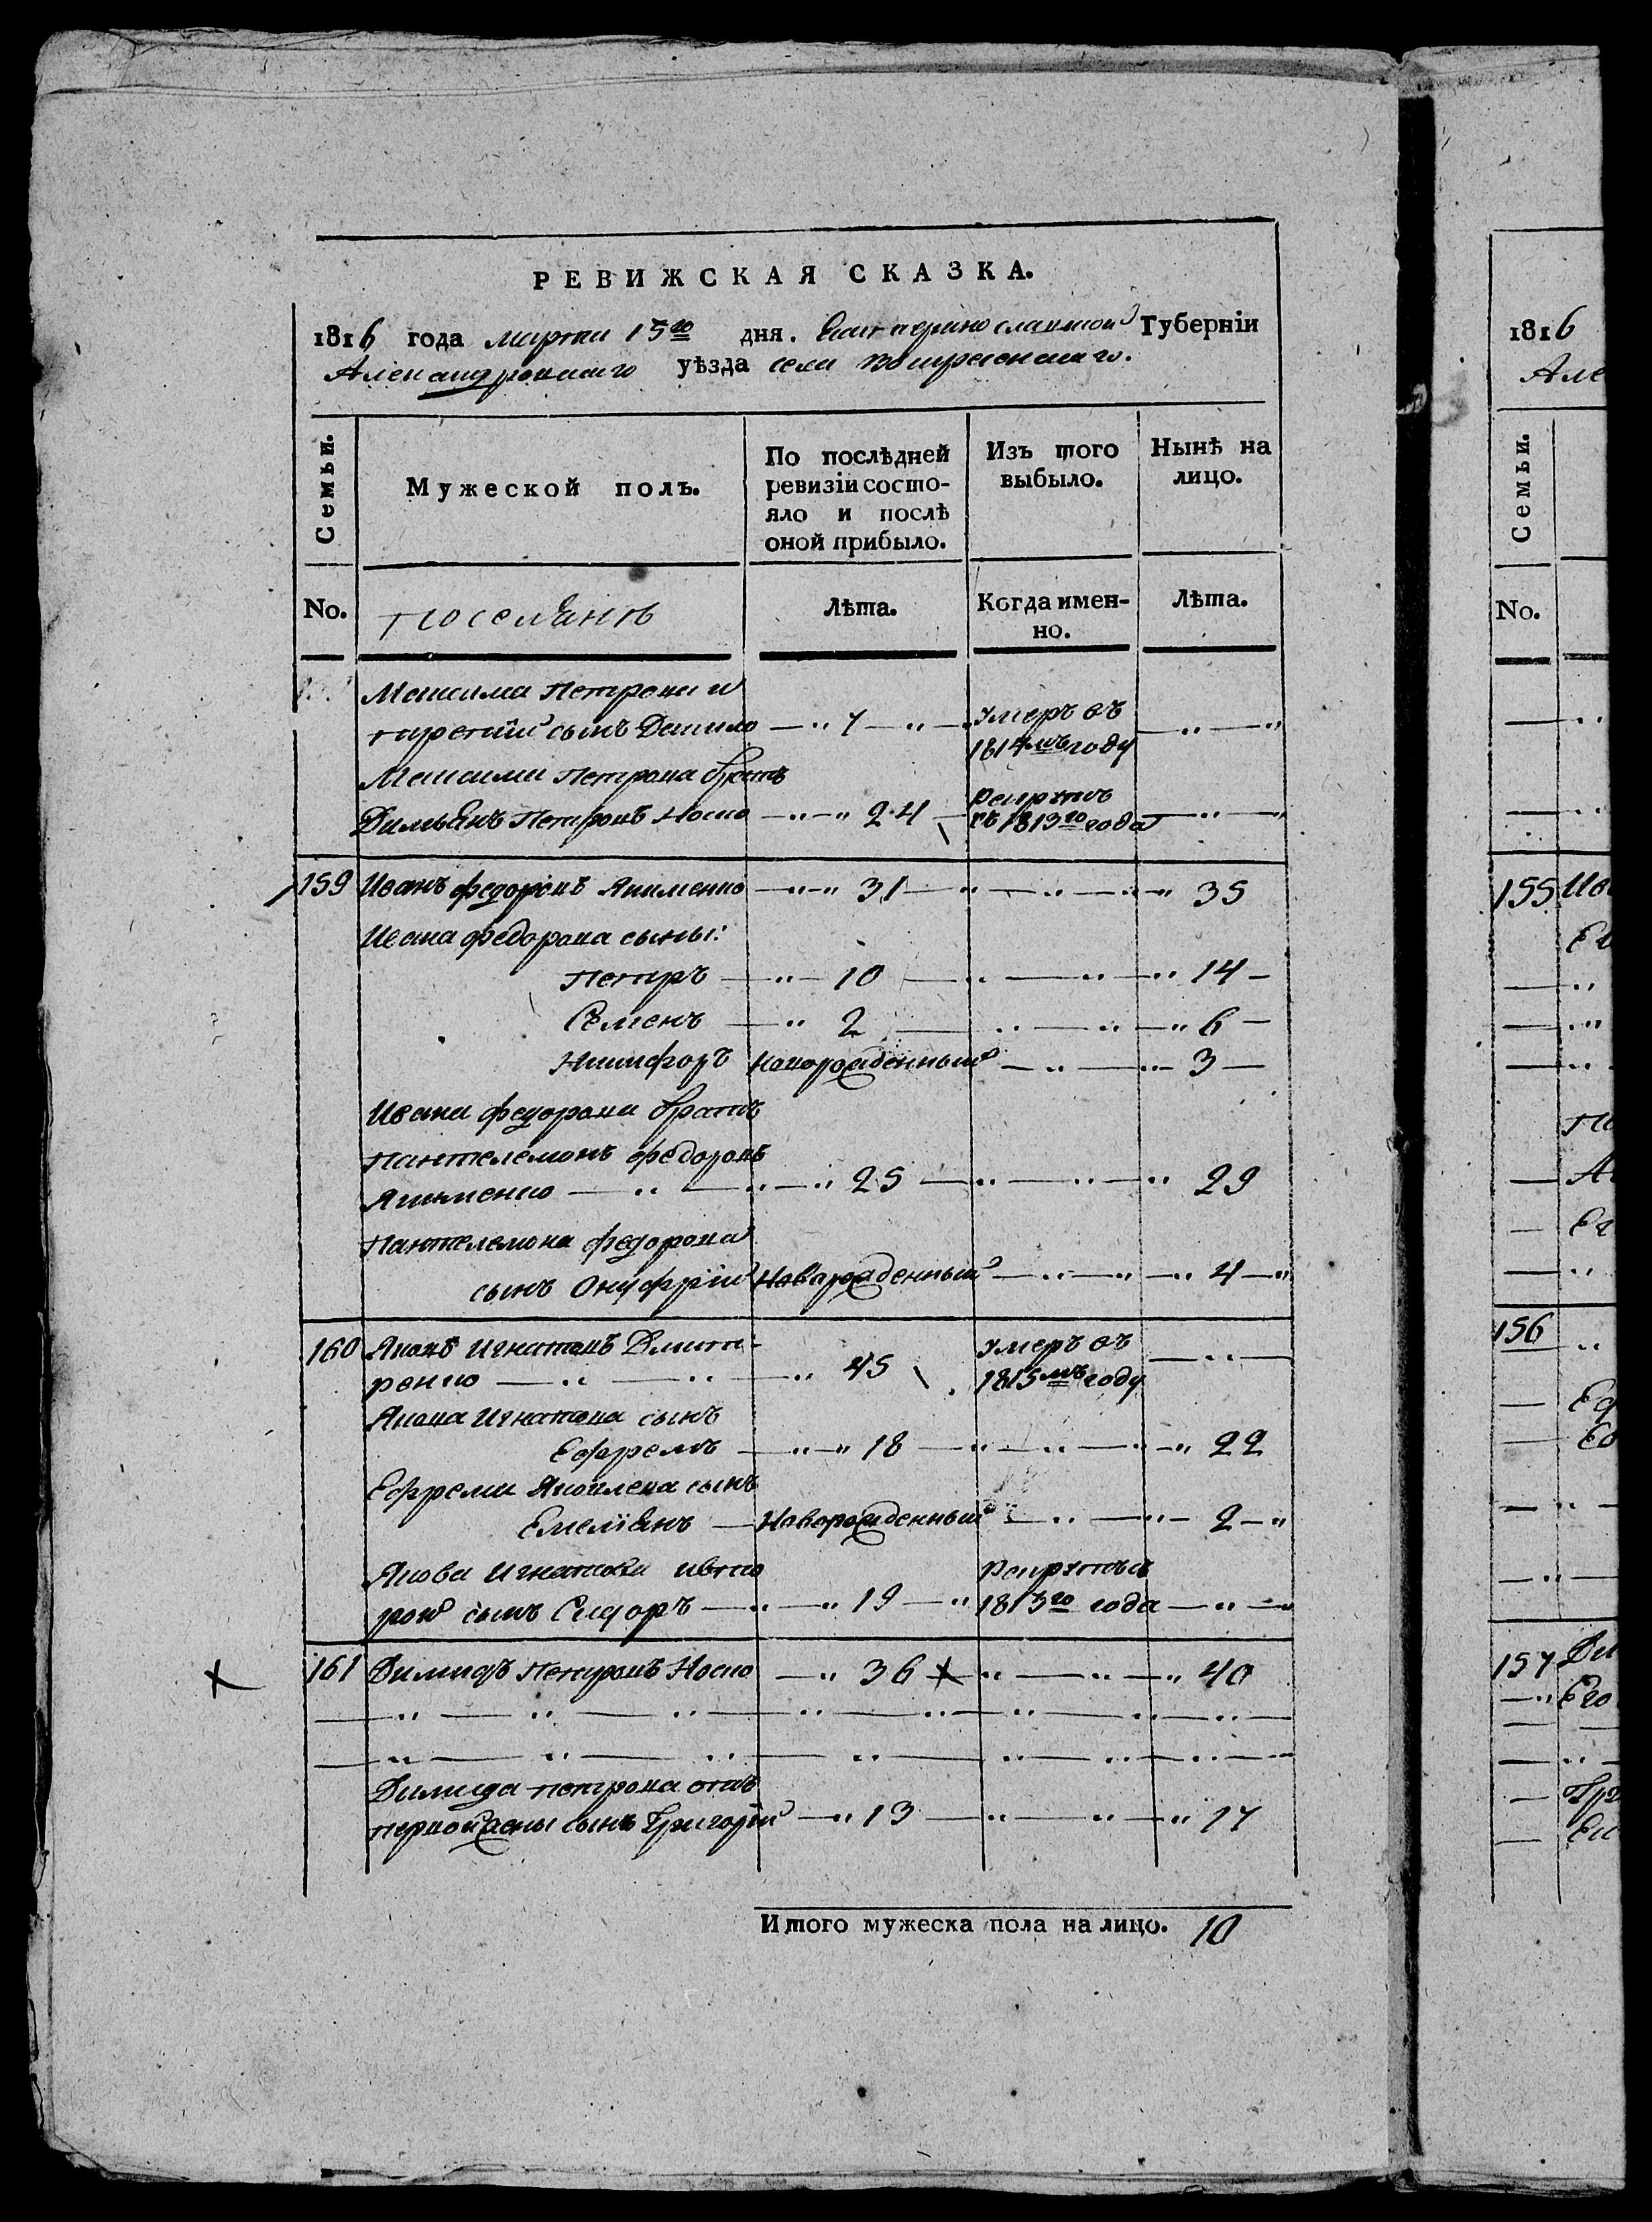 РЕВИЖСКАЯ СКАЗКА.
1816 года марта 15го дня. Екатеринославской Губерніи
Александровскаго уѣзда села Воскресенскаго.
Семьи.
Мужеской полъ.
По послѣдней ревизіи состо-
яло и послѣ
оной прибыло.
Изъ того
выбыло.
Нынѣ на
лицо.
No.
поселянъ
Лѣта.
Когда имен-
но.
Лѣта.
Максима Петрова
третій сынъ Данило 7 умеръ въ
1814мъ году
Максима Петрова братъ
Демьянъ Петровъ Носко 24 рекрутъ
съ 1813го года
159 Иванъ Федоровъ Якименко 31 35
Ивана Федорова сыны:
Петръ 10 14
Семенъ 2 6
Никифоръ новорожденный 3
Ивана Федорова братъ
Пантелемонъ Федоровъ
Якименко 25 29
Пантелемона Федорова
сынъ Онуфрій Новорожденный 4
160 Яковъ Игнатовъ Дмит-
ренко 45 умеръ въ
1815мъ году
Якова Игнатова сынъ
Ефремъ 18 22
Ефрема Яковлева сынъ
Емеліянъ Новорожденный 2
Якова Игнатова
рой сынъ Сидоръ 19 рекрутъ
1813го года
161 Димидъ Петровъ Носко 36 40
Димида Петрова отъ
первой жены сынъ Григорій 13 17
Итого мужеска пола на лицо. 10
1816
Але
Семьи.
No.
155 Ив
156
157
Его